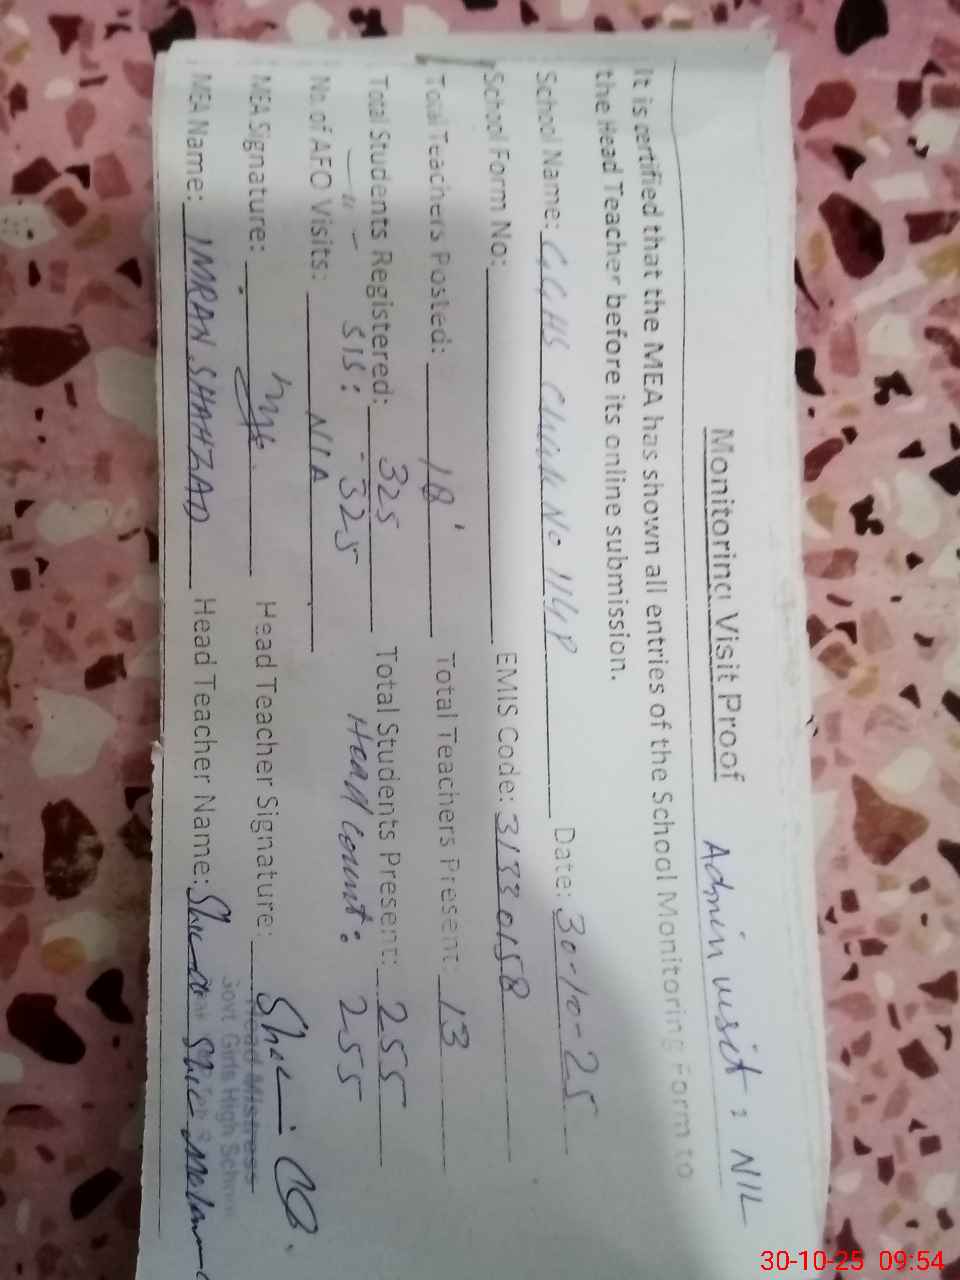 Monitoring Visit Proof
Admin visit : NIL
It is certified that the MEA has shown all entries of the School Monitoring Form to
the Head Teacher before its online submission.
School Name: GGHS Chak No 114P Date: 30-10-25
School Form No: EMIS Code: 31330158
Total Teachers Posted: 18 Total Teachers Present: 13
Total Students Registered: 325 Total Students Present: 255
—"— SIS: 325 Head count: 255
No. of AEO Visits: N/A
MEA Signature: Head Teacher Signature:
Head Mistress
Govt. Girls High School
MEA Name: IMRAN SHAHZAD Head Teacher Name:
30-10-25 09:54